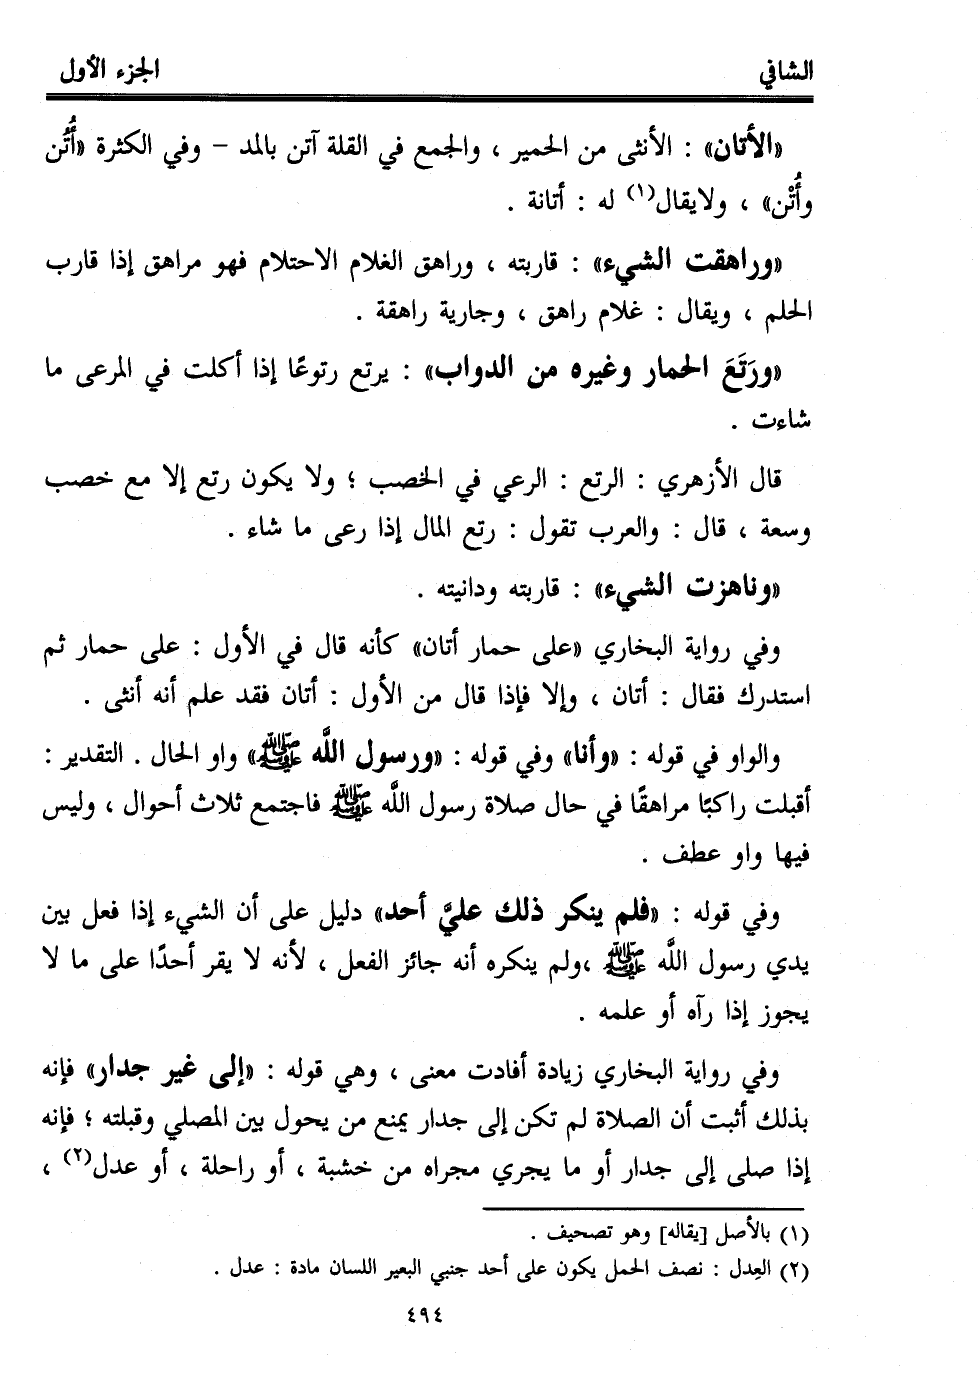 الشافي الجزء الأول
«الأتان» : الأنثى من الحمير ، والجمع في القلة آتن بالمد – وفي الكثرة «أُتُن
وأُتْن» ، ولايقال(١) له : أتانة .
«وراهقت الشيء» : قاربته ، وراهق الغلام الاحتلام فهو مراهق إذا قارب
الحلم ، ويقال : غلام راهق ، وجارية راهقة .
«ورَتَعَ الحمار وغيره من الدواب» : يرتع رتوعًا إذا أكلت في المرعى ما
شاءت .
قال الأزهري : الرتع : الرعي في الخصب ؛ ولا يكون رتع إلا مع خصب
وسعة ، قال : والعرب تقول : رتع المال إذا رعى ما شاء .
«وناهزت الشيء» : قاربته ودانيته .
وفي رواية البخاري «على حمار أتان» كأنه قال في الأول : على حمار ثم
استدرك فقال : أتان ، وإلا فإذا قال من الأول : أتان فقد علم أنه أنثى .
والواو في قوله : «وأنا» وفي قوله : «ورسول اللَّه ﷺ» واو الحال . التقدير :
أقبلت راكبًا مراهقًا في حال صلاة رسول اللَّه ﷺ فاجتمع ثلاث أحوال ، وليس
فيها واو عطف .
وفي قوله : «فلم ينكر ذلك عليَّ أحد» دليل على أن الشيء إذا فعل بين
يدي رسول اللَّه ﷺ ،ولم ينكره أنه جائز الفعل ، لأنه لا يقر أحدًا على ما لا
يجوز إذا رآه أو علمه .
وفي رواية البخاري زيادة أفادت معنى ، وهي قوله : «إلى غير جدار» فإنه
بذلك أثبت أن الصلاة لم تكن إلى جدار يمنع من يحول بين المصلي وقبلته ؛ فإنه
إذا صلى إلى جدار أو ما يجري مجراه من خشبة ، أو راحلة ، أو عدل(٢) ،
(١) بالأصل [يقاله] وهو تصحيف .
(٢) العِدل : نصف الحمل يكون على أحد جنبي البعير اللسان مادة : عدل .
٤٩٤